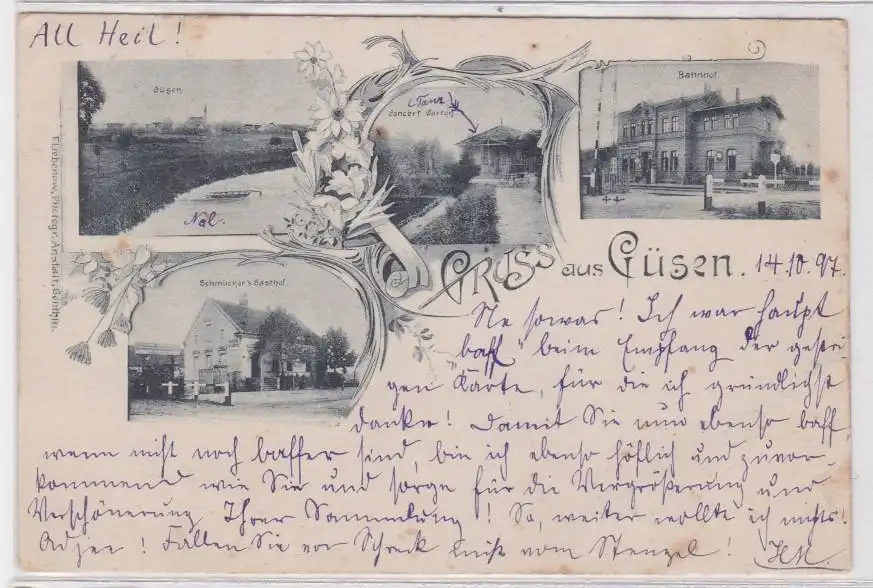 All Heil!
Güsen.
(Tanz)
Concert Garten
Bahnhof.
Nal.
F. Liebenow, Photogr. Anstalt, Genthin.
Schmücker's Gasthof.
Gruss aus Güsen. 14.10.97.
Ne sowas! Ich war haupt
"baff" beim Empfang der gestri-
gen Karte, für die ich gründlichst
danke! Damit Sie nun ebenso baff,
wenn nicht noch baffer sind, bin ich ebenso höflich und zuvor-
kommend wie Sie und sorge für die Vergrößerung und
Verschönerung Ihrer Sammlung! So, weiter wollte ich nichts!
Adjee! Fallen Sie vor Schreck nicht vom Stengel!